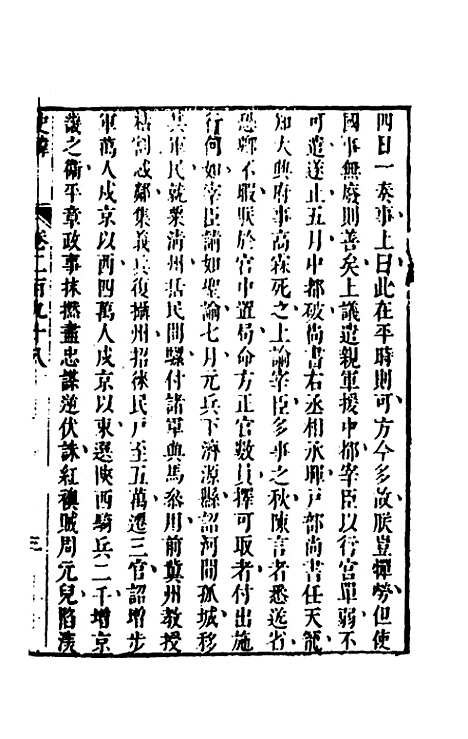 四日一奏事上曰此在平時則可方今多故朕豈憚勞但使
國事無廢則善矣上議遣親軍援中都宰臣以行宮單弱不
可遣遂止五月中都破尚書右丞相承暉戸部尚書任天寵
知大興府事高霖死之上諭宰臣多事之秋陳言者悉送省
恐卿不暇朕於宮中置局命方正官數員擇可取者付出施
行何如宰臣請如聖諭七月元兵下濟源縣詔河間孤城移
其軍民就粟清州括民間騾付諸軍與馬叅用前冀州教授
粘割忒鄰集義兵復攝州招徠民戸至五萬遷三官詔增步
軍萬人戍京以西四萬人戍京以東選陝西騎兵二千增京
畿之衞平章政事抹撚盡忠謀逆伏誅紅襖賊周元兒陷
史緯
卷二百九十八
三